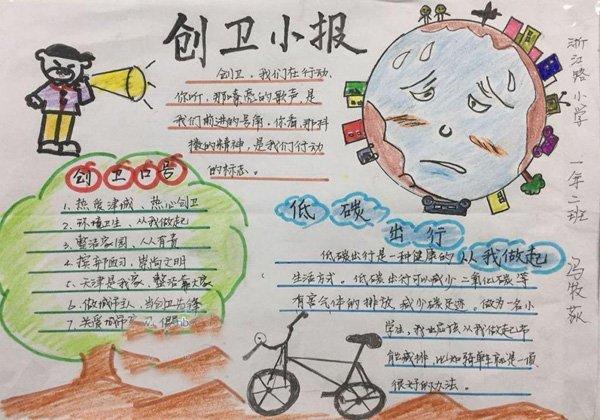 创卫小报
创卫，我们在行动.
你听，那嘹亮的歌声，是
我们前进的号角，你看，那抖
擞的精神，是我们行动
的标志。
创卫口号
1、热爱津城、热心创卫
2、环境卫生、从我做起
3、整洁家园、人人有责
4、摈弃陋习、崇尚文明
5、天津是我家、整洁靠大家
6、做城市主人、当创卫先锋
7、关爱城市
低碳
出行
从我做起
低碳出行是一种健康的
生活方式。低碳出行可以减少二氧化碳等
有害气体的排放,减少碳足迹。做为一名小
学生，我也应该从我做起节
能减排，比如骑单车就是一项
很好的办法。
浙江路小学 一年二班